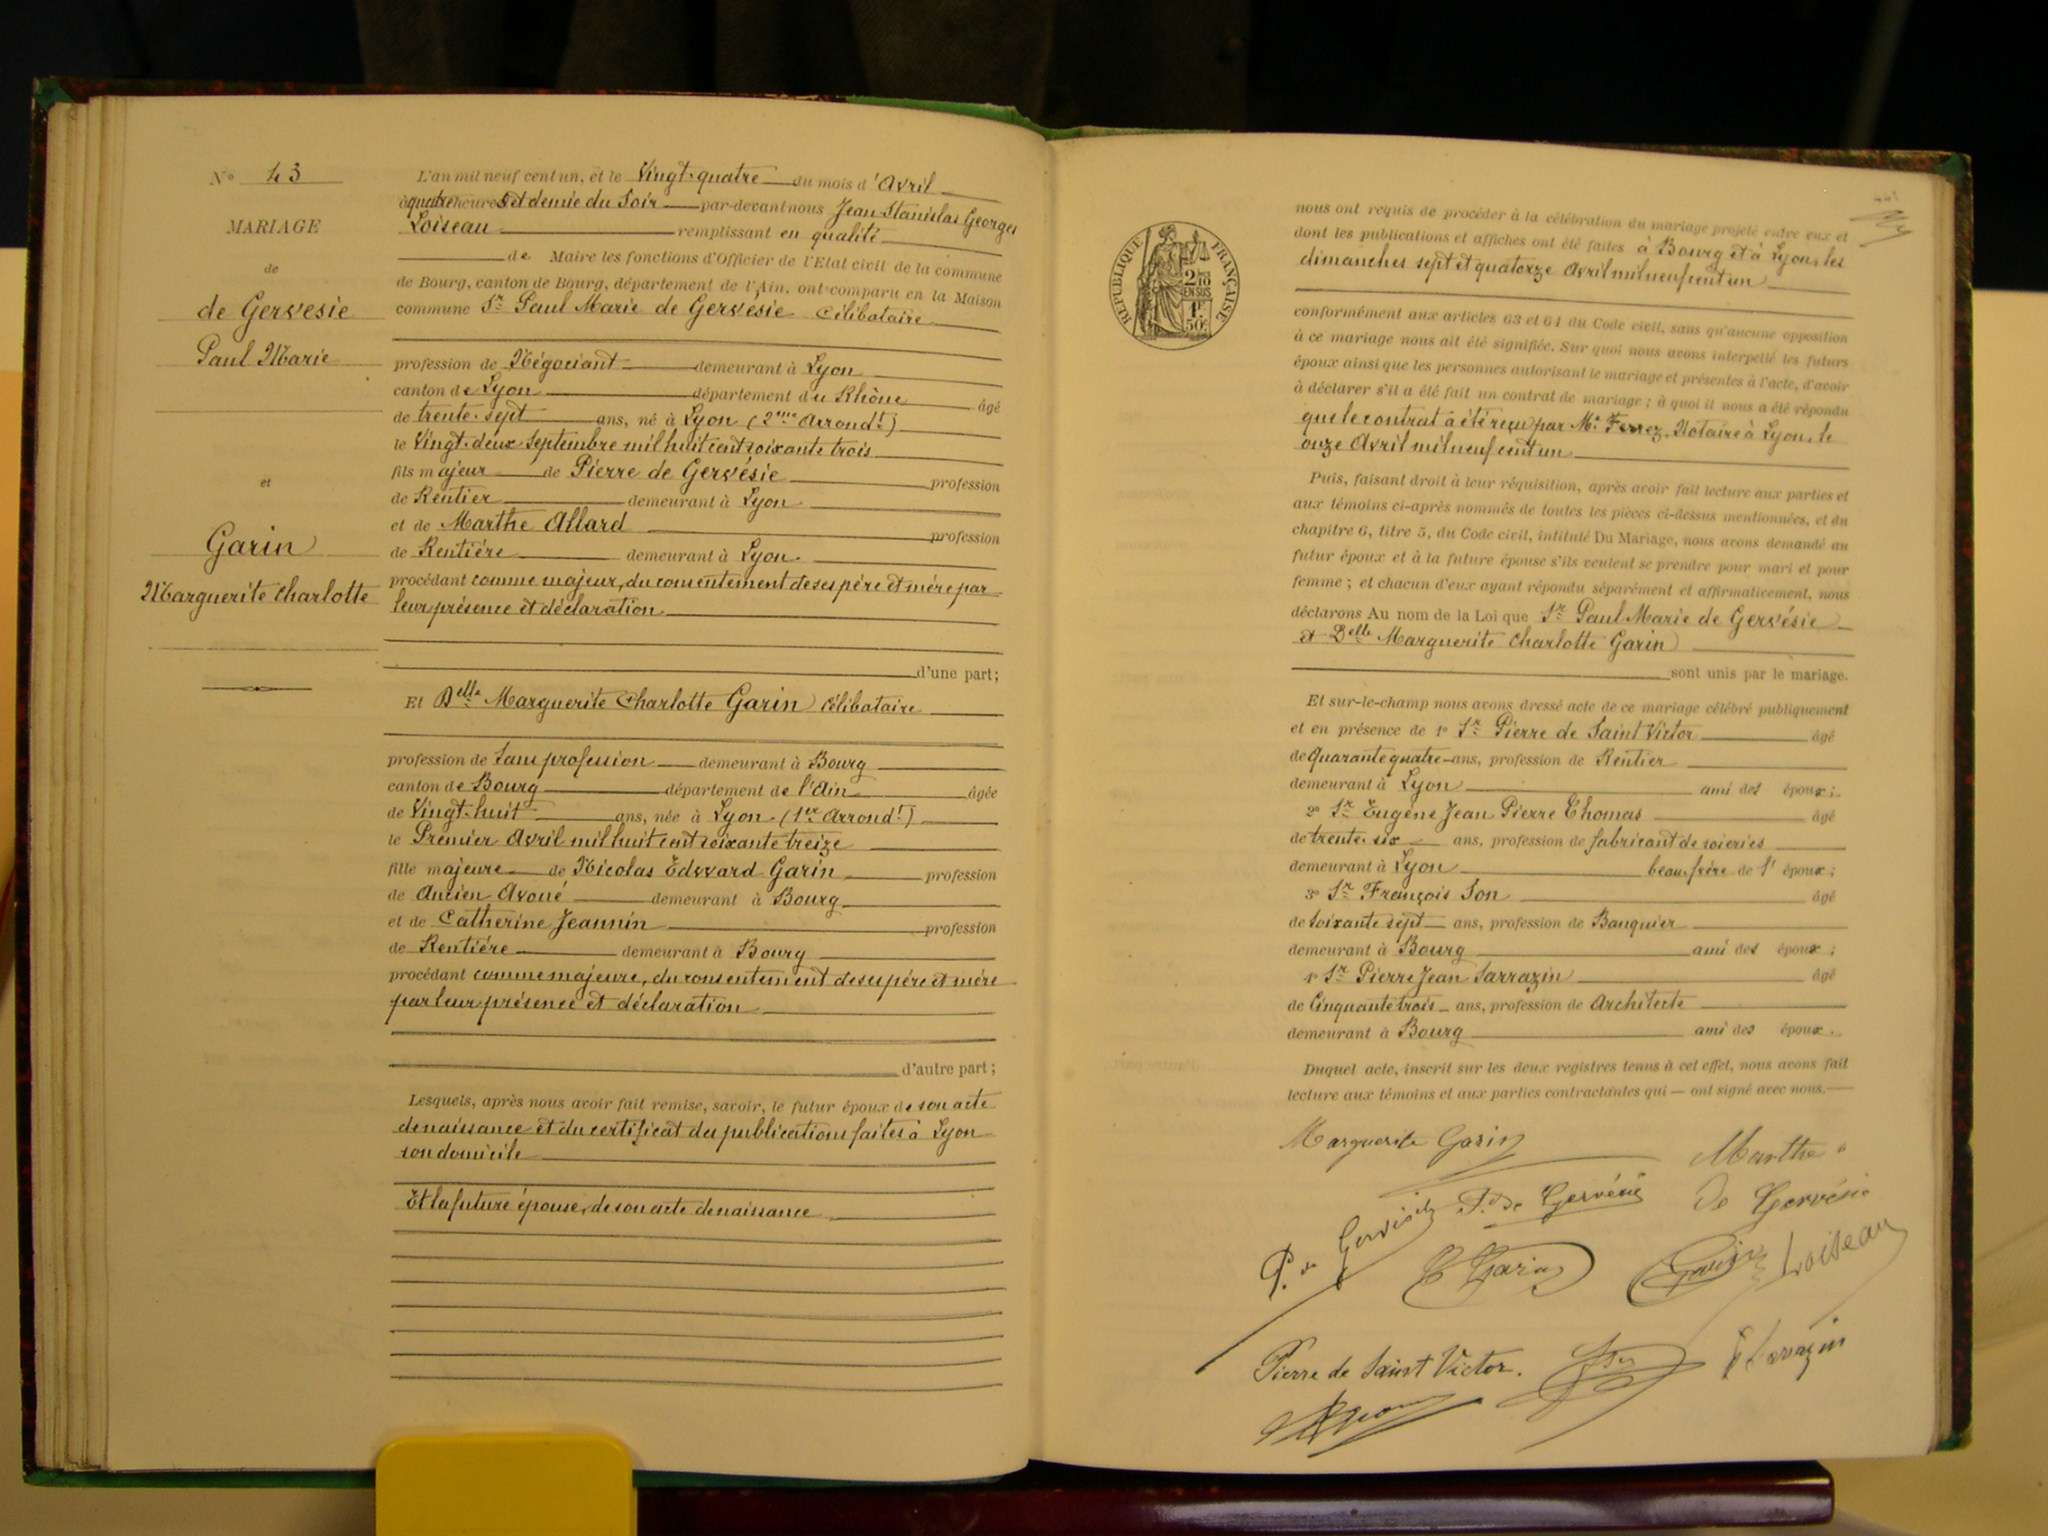 N° 43
MARIAGE
de
de Gervésie
Paul Marie
et
Garin
Marguerite Charlotte
L'an mil neuf cent un, et le Vingt-quatre du mois d'Avril
à quatre heures et demie du Soir par-devant nous Jean Stanislas Georges
Loiseau remplissant en qualité
de Maire les fonctions d'Officier de l'Etat civil de la commune
de Bourg, canton de Bourg, département de l'Ain, ont comparu en la Maison
commune Sr Paul Marie de Gervésie Célibataire
profession de Négociant demeurant à Lyon
canton de Lyon département du Rhône âgé
de trente-sept ans, né à Lyon (2me Arrondt)
le Vingt-deux Septembre mil huit cent soixante trois
fils majeur de Pierre de Gervésie profession
de Rentier demeurant à Lyon
et de Marthe Allard profession
de Rentière demeurant à Lyon
procédant comme majeur, du consentement de ses père et mère par
leur présence et déclaration
d'une part;
Et Delle Marguerite Charlotte Garin Célibataire
profession de Sans profession demeurant à Bourg
canton de Bourg département de l'Ain âgée
de Vingt-huit ans, née à Lyon (1er Arrondt)
le Premier Avril mil huit cent soixante treize
fille majeure de Nicolas Edward Garin profession
de Ancien Avoué demeurant à Bourg
et de Catherine Jeannin profession
de Rentière demeurant à Bourg
procédant comme majeure, du consentement de ses père et mère
par leur présence et déclaration
d'autre part;
Lesquels, après nous avoir fait remise, savoir, le futur époux de son acte
de naissance et du certificat des publications faites à Lyon
son domicile
Et la future épouse, de son acte de naissance
RÉPUBLIQUE FRANÇAISE
2/10 EN SUS
1F 50c
nous ont requis de procéder à la célébration du mariage projeté entre eux et
dont les publications et affiches ont été faites à Bourg et à Lyon, les
dimanches sept et quatorze Avril mil neuf cent un
conformément aux articles 63 et 64 du Code civil, sans qu'aucune opposition
à ce mariage nous ait été signifiée. Sur quoi nous avons interpellé les futurs
époux ainsi que les personnes autorisant le mariage et présentes à l'acte, d'avoir
à déclarer s'il a été fait un contrat de mariage; à quoi il nous a été répondu
que le contrat a été reçu par Me Ferrez, Notaire à Lyon, le
onze Avril mil neuf cent un
Puis, faisant droit à leur réquisition, après avoir fait lecture aux parties et
aux témoins ci-après nommés de toutes les pièces ci-dessus mentionnées, et du
chapitre 6, titre 5, du Code civil, intitulé Du Mariage, nous avons demandé au
futur époux et à la future épouse s'ils veulent se prendre pour mari et pour
femme; et chacun d'eux ayant répondu séparément et affirmativement, nous
déclarons Au nom de la Loi que Sr Paul Marie de Gervésie
et Delle Marguerite Charlotte Garin
sont unis par le mariage.
Et sur-le-champ nous avons dressé acte de ce mariage célébré publiquement
et en présence de 1° Sr Pierre de Saint Victor âgé
de Quarante quatre ans, profession de Rentier
demeurant à Lyon ami des époux;
2° Sr Eugène Jean Pierre Thomas âgé
de trente-six ans, profession de fabricant de soieries
demeurant à Lyon beau-frère de l'époux;
3° Sr François Son âgé
de Soixante sept ans, profession de Banquier
demeurant à Bourg ami des époux;
4° Sr Pierre Jean Sarrazin âgé
de Cinquante trois ans, profession de Architecte
demeurant à Bourg ami des époux.
Duquel acte, inscrit sur les deux registres tenus à cet effet, nous avons fait
lecture aux témoins et aux parties contractantes qui — ont signé avec nous.
Marguerite Garin
Marthe
de Gervésie
P. de Gervésie
P. de Gervésie
C Garin
Garin
Loiseau
Pierre de Saint Victor.
Sarrazin